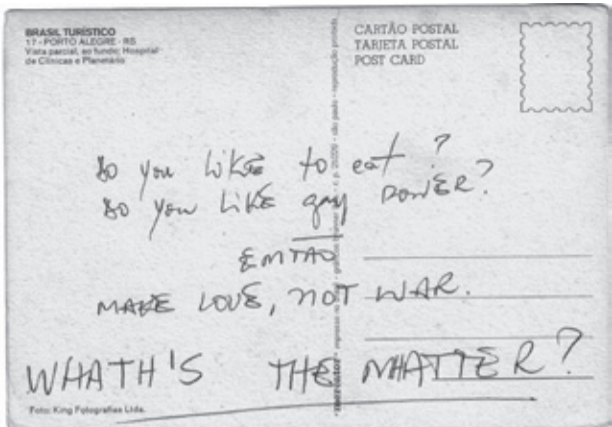 BRASIL TURÍSTICO
17 - PORTO ALEGRE - RS
Vista parcial, ao fundo: Hospital
de Clínicas e Planetário
CARTÃO POSTAL
TARJETA POSTAL
POST CARD
DO you likE to eat?
DO you LIKE gay POWER?
EMTÃO
MAKE LOVE, NOT WAR.
WHATH'S THE MHATTER?
Foto: King Fotografias Ltda.